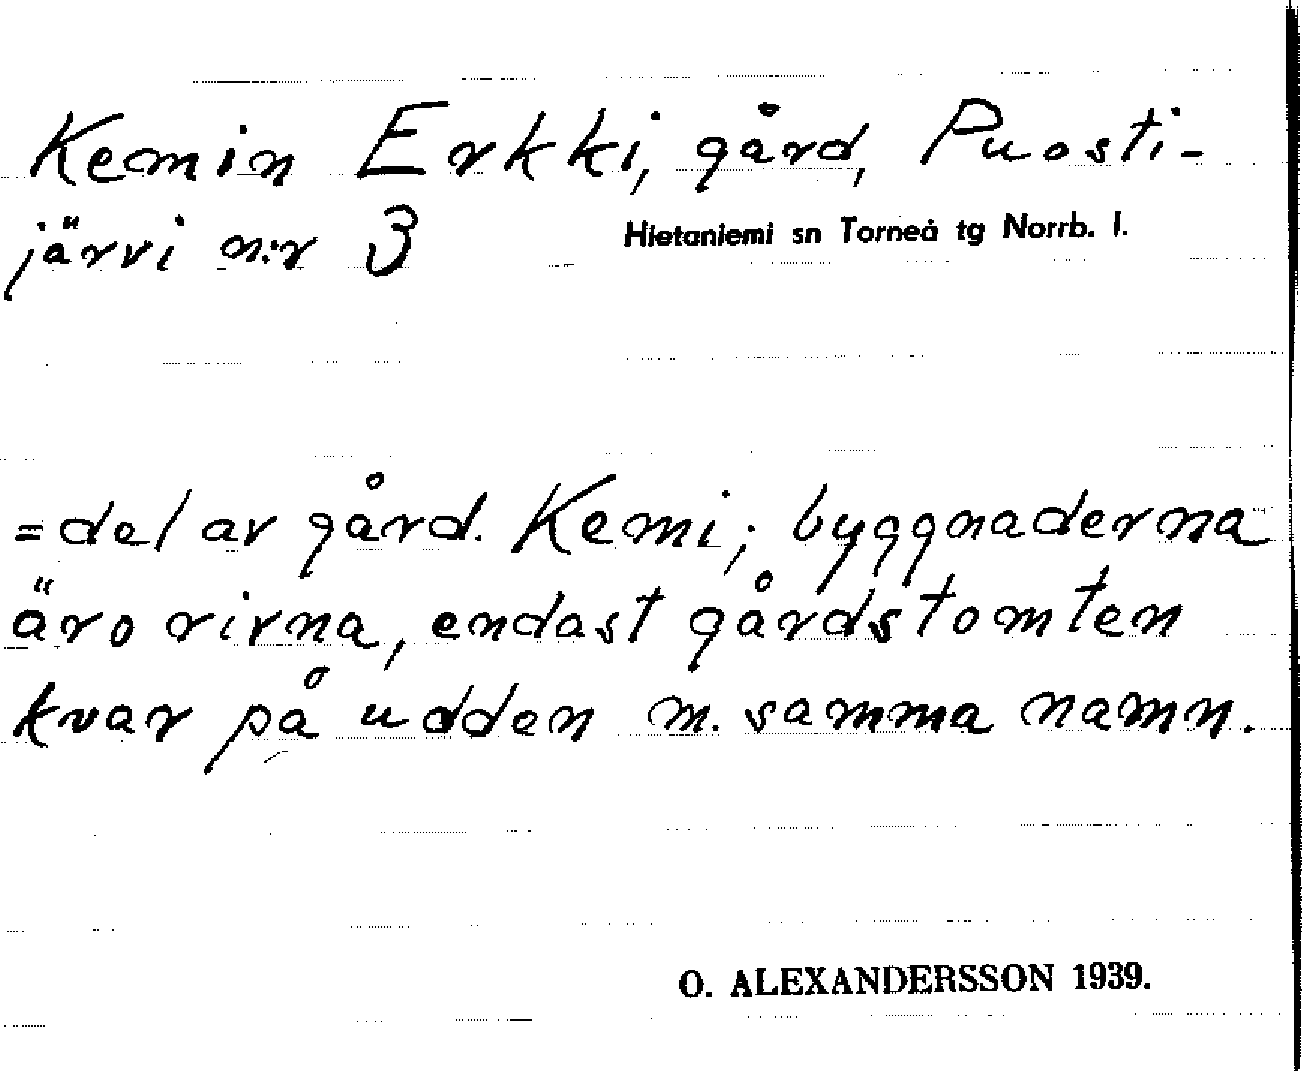 Kemin Erkki, gård, Puosti-
järvi n:r 3 Hietaniemi sn Torneå tg Norrb. l.
= del av gård. Kemi; byggnaderna
äro rivna, endast gårdstomten
kvar på udden m. samma namn.
O. ALEXANDERSSON 1939.